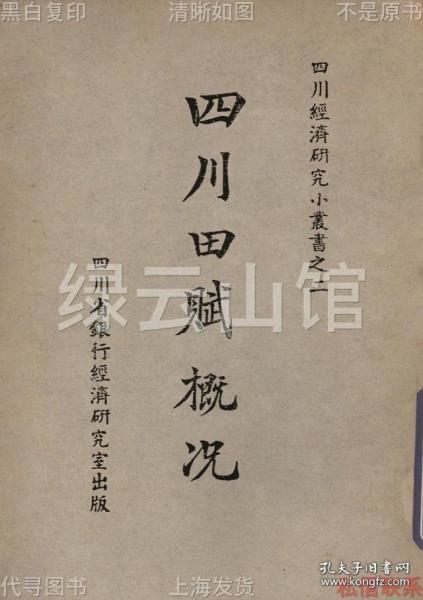 黑白复印 清晰如图 不是原书
四川經濟研究小叢書之二
四川田賦概况
四川省銀行經濟研究室出版
绿云山馆
孔夫子旧书网
www.kongfz.com
代寻图书 上海发货 私信联系